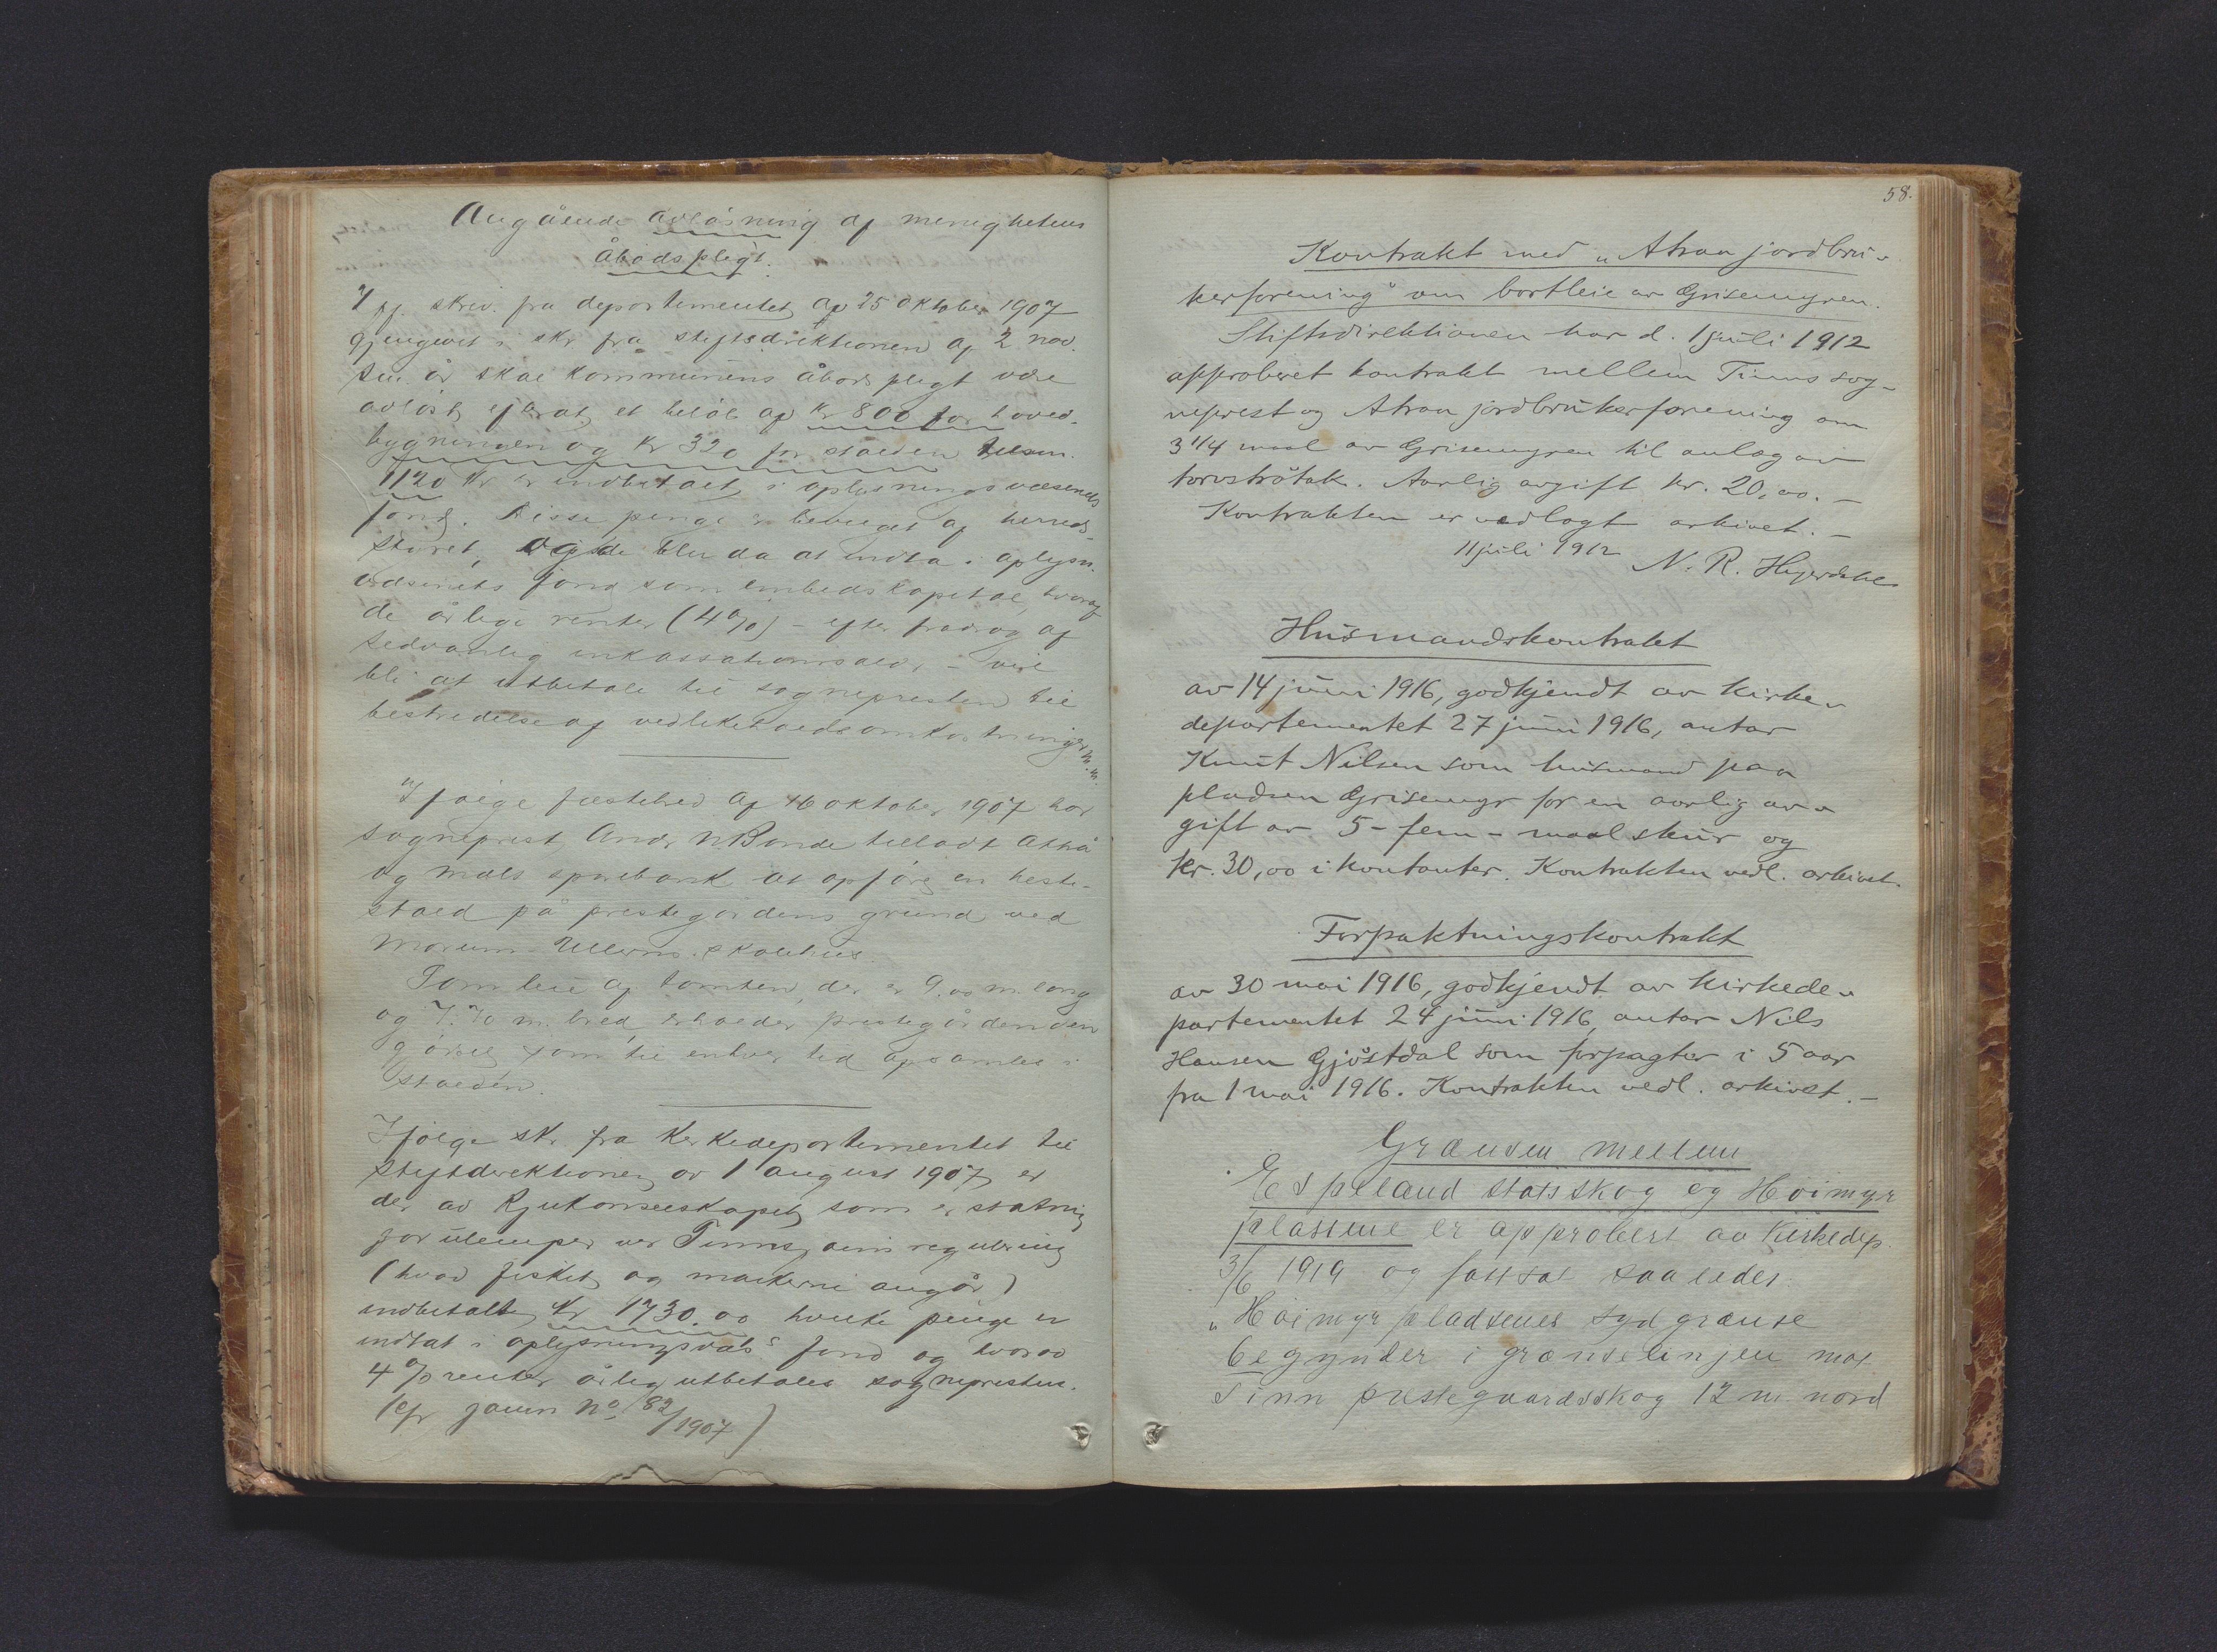 Angående avløsning af menighetens
åbodsplegt.
I flg. skriv. fra departementet af 25 oktober 1907
gjengivet i skr fra stiftsdirektionen af 2 nov.
s. år skal kommunens åbodsplegt være
avløst efterat et beløb af Kr 800 for hoved-
bygningen og Kr 320 for stalden tilsm.
1120 Kr er indbetalt i oplysningsvæsenets
fond. Disse penge er bevilget af herreds-
styret, og de blir da at indta i oplysn.
væsenets fond som embedskapital, hvoraf
de årlige renter (4%) - efter fradrag af
sedvanlig inkassationsald. - vil
bli at utbetale til sognepresten til
bestridelse af vedlikeholdsomkostninger m.m.
Ifølge festebrev af 16 oktober 1907 har
sogneprest Andr N Bonde tilladt Atrå
og Mæls sparebank at opføre en heste-
stald på prestegårdens grund ved
Morum-Ullerns skolehus.
Som leie af tomten, der er 9.00 m. lang
og 7.70 m. bred, erholder prestegården den
gjødsel som til enhver tid opsamles i
stalden.
Ifølge skr. fra Kirkedepartementet til
Stiftsdirektionen av 1 august 1907 er
der av Rjukanselskapet som erstatning
for ulemper ved Tinnsjøens regulering
(hvad fisket og markerne angår)
indbetalt Kr 1730.00 hvilke penge er
indtat i oplysningsvæs's fond og hvorav
4% renter årlig utbetales sognepresten.
(cfr journ No 82/1907)
58.
Kontrakt med "Atraa jordbru-
kerforening" om bortleie av Grisemyren.
Stiftsdirektionen har d. 1 juli 1912
approberet kontrakt mellem Tinns sog-
neprest og Atraa jordbrukerforening om
3 1/4 maal av Grisemyren til anlæg av
torvstrøtak. Aarlig avgift kr. 20,00. -
Kontrakten er vedlagt arkivet. -
11 juli 1912 N. R. Hegerdahl
Husmandskontrakt
av 14 juni 1916, godkjendt av kirke-
departementet 27 juni 1916, antar
Knut Nilsen som husmand paa
pladsen Grisemyr for en aarlig av-
gift av 5 - fem - maal skur og
kr. 30,00 i kontanter. Kontrakten vedl. arkivet.
Forpaktningskontrakt
av 30 mai 1916, godkjendt av kirkede-
partementet 24 juni 1916, antar Nils
Hansen Gjøstdal som forpagter i 5 aar
fra 1 mai 1916. Kontrakten vedl. arkivet. -
Grænsen mellem
Espeland statsskog og Høimyr
plassene er approbert av Kirkedep.
3/6 1919 og fastsat saaledes:
"Høimyrpladsenes sydgrænse
begynder i grænselinjen mot
Tinn prestegaardsskog 12 m. nord